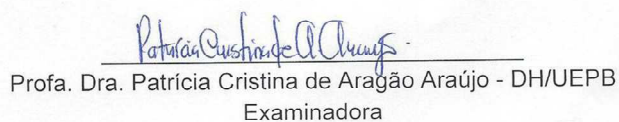 Patrícia Cristina de A Araújo.
Profa. Dra. Patrícia Cristina de Aragão Araújo - DH/UEPB
Examinadora